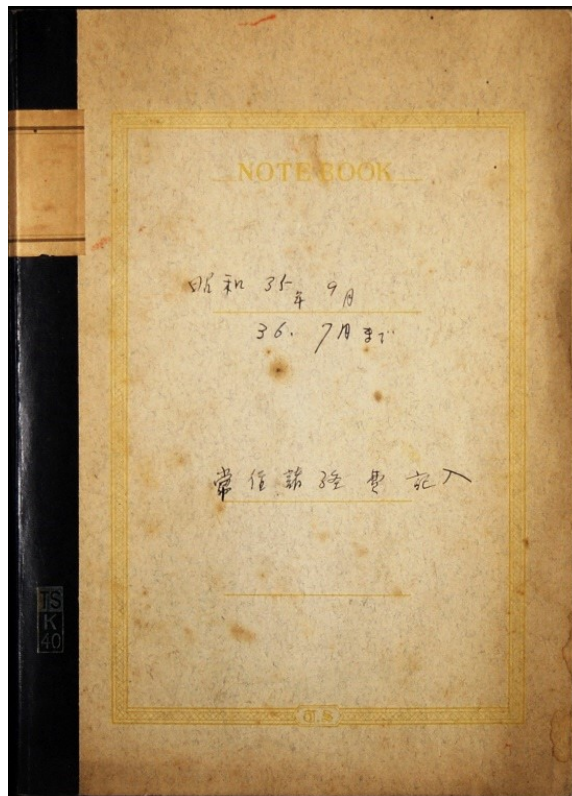 NOTE BOOK
昭和 35年 9月
36. 7月まで
常住諸経費記入
TS
K
40
T.S